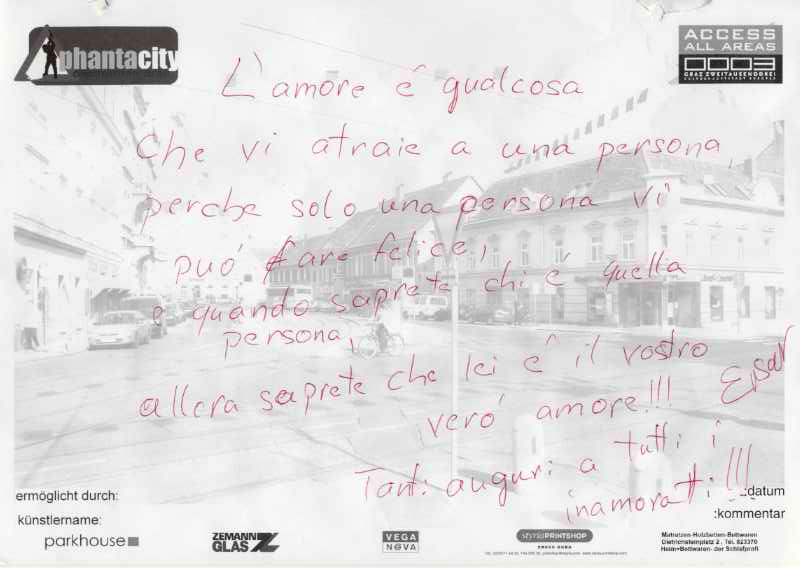 phantacity
ACCESS
ALL AREAS
0003
GRAZ ZWEITAUSENDDREI
L'amore é qualcosa
che vi atraie a una persona
perche solo una persona vi
puó fare felice,
e quando saprete chi é quella
persona,
allora saprete che lei é il vostro
veró amore!!!
Ersar
Tanti auguri a tutti i
inamoratti!!!
ermöglicht durch:
:datum
künstlername:
:kommentar
parkhouse
ZEMANN
GLAS
VEGA
NOVA
PRINTSHOP
Matratzen-Holzbetten-Bettwaren
Dietrichsteinplatz 2, Tel. 823370
Heim+Bettwaren- der Schlafprofi